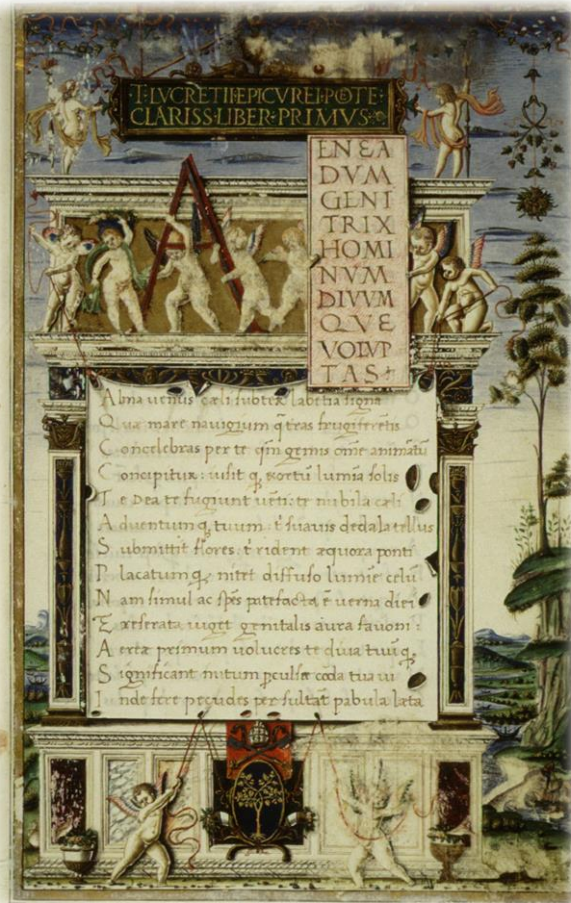 T·LVCRETII·EPICVREI·POETE·
CLARISS·LIBER·PRIMVS·
A
ENEA
DVM
GENI
TRIX
HOMI
NVM
DIVVM
QVE
VOLVP
TAS
Alma uenus cæli subter labētia signa
Quæ mare nauigium q̄ tras frugiferētis
Concelebras per te qm̄ genus om̄e animātū
Concipitur: uisit q; exortū lumīa solis
Te Dea te fugiunt uēti: te nubila cæli
Aduentum q; tuum: t̄ suauis dedala tellus
Submittit flores: t̄ rident æquora ponti
Placatum q; nitet diffuso lumīe celū
Nam simul ac sp̄es patefacta ē uerna diei
Et reserata uiget genitalis aura fauoni:
Aereæ primum uolucres te diua tuū q;
Significant initum p̄culsæ corda tua ui
Inde fere pecudes per sultāt pabula læta